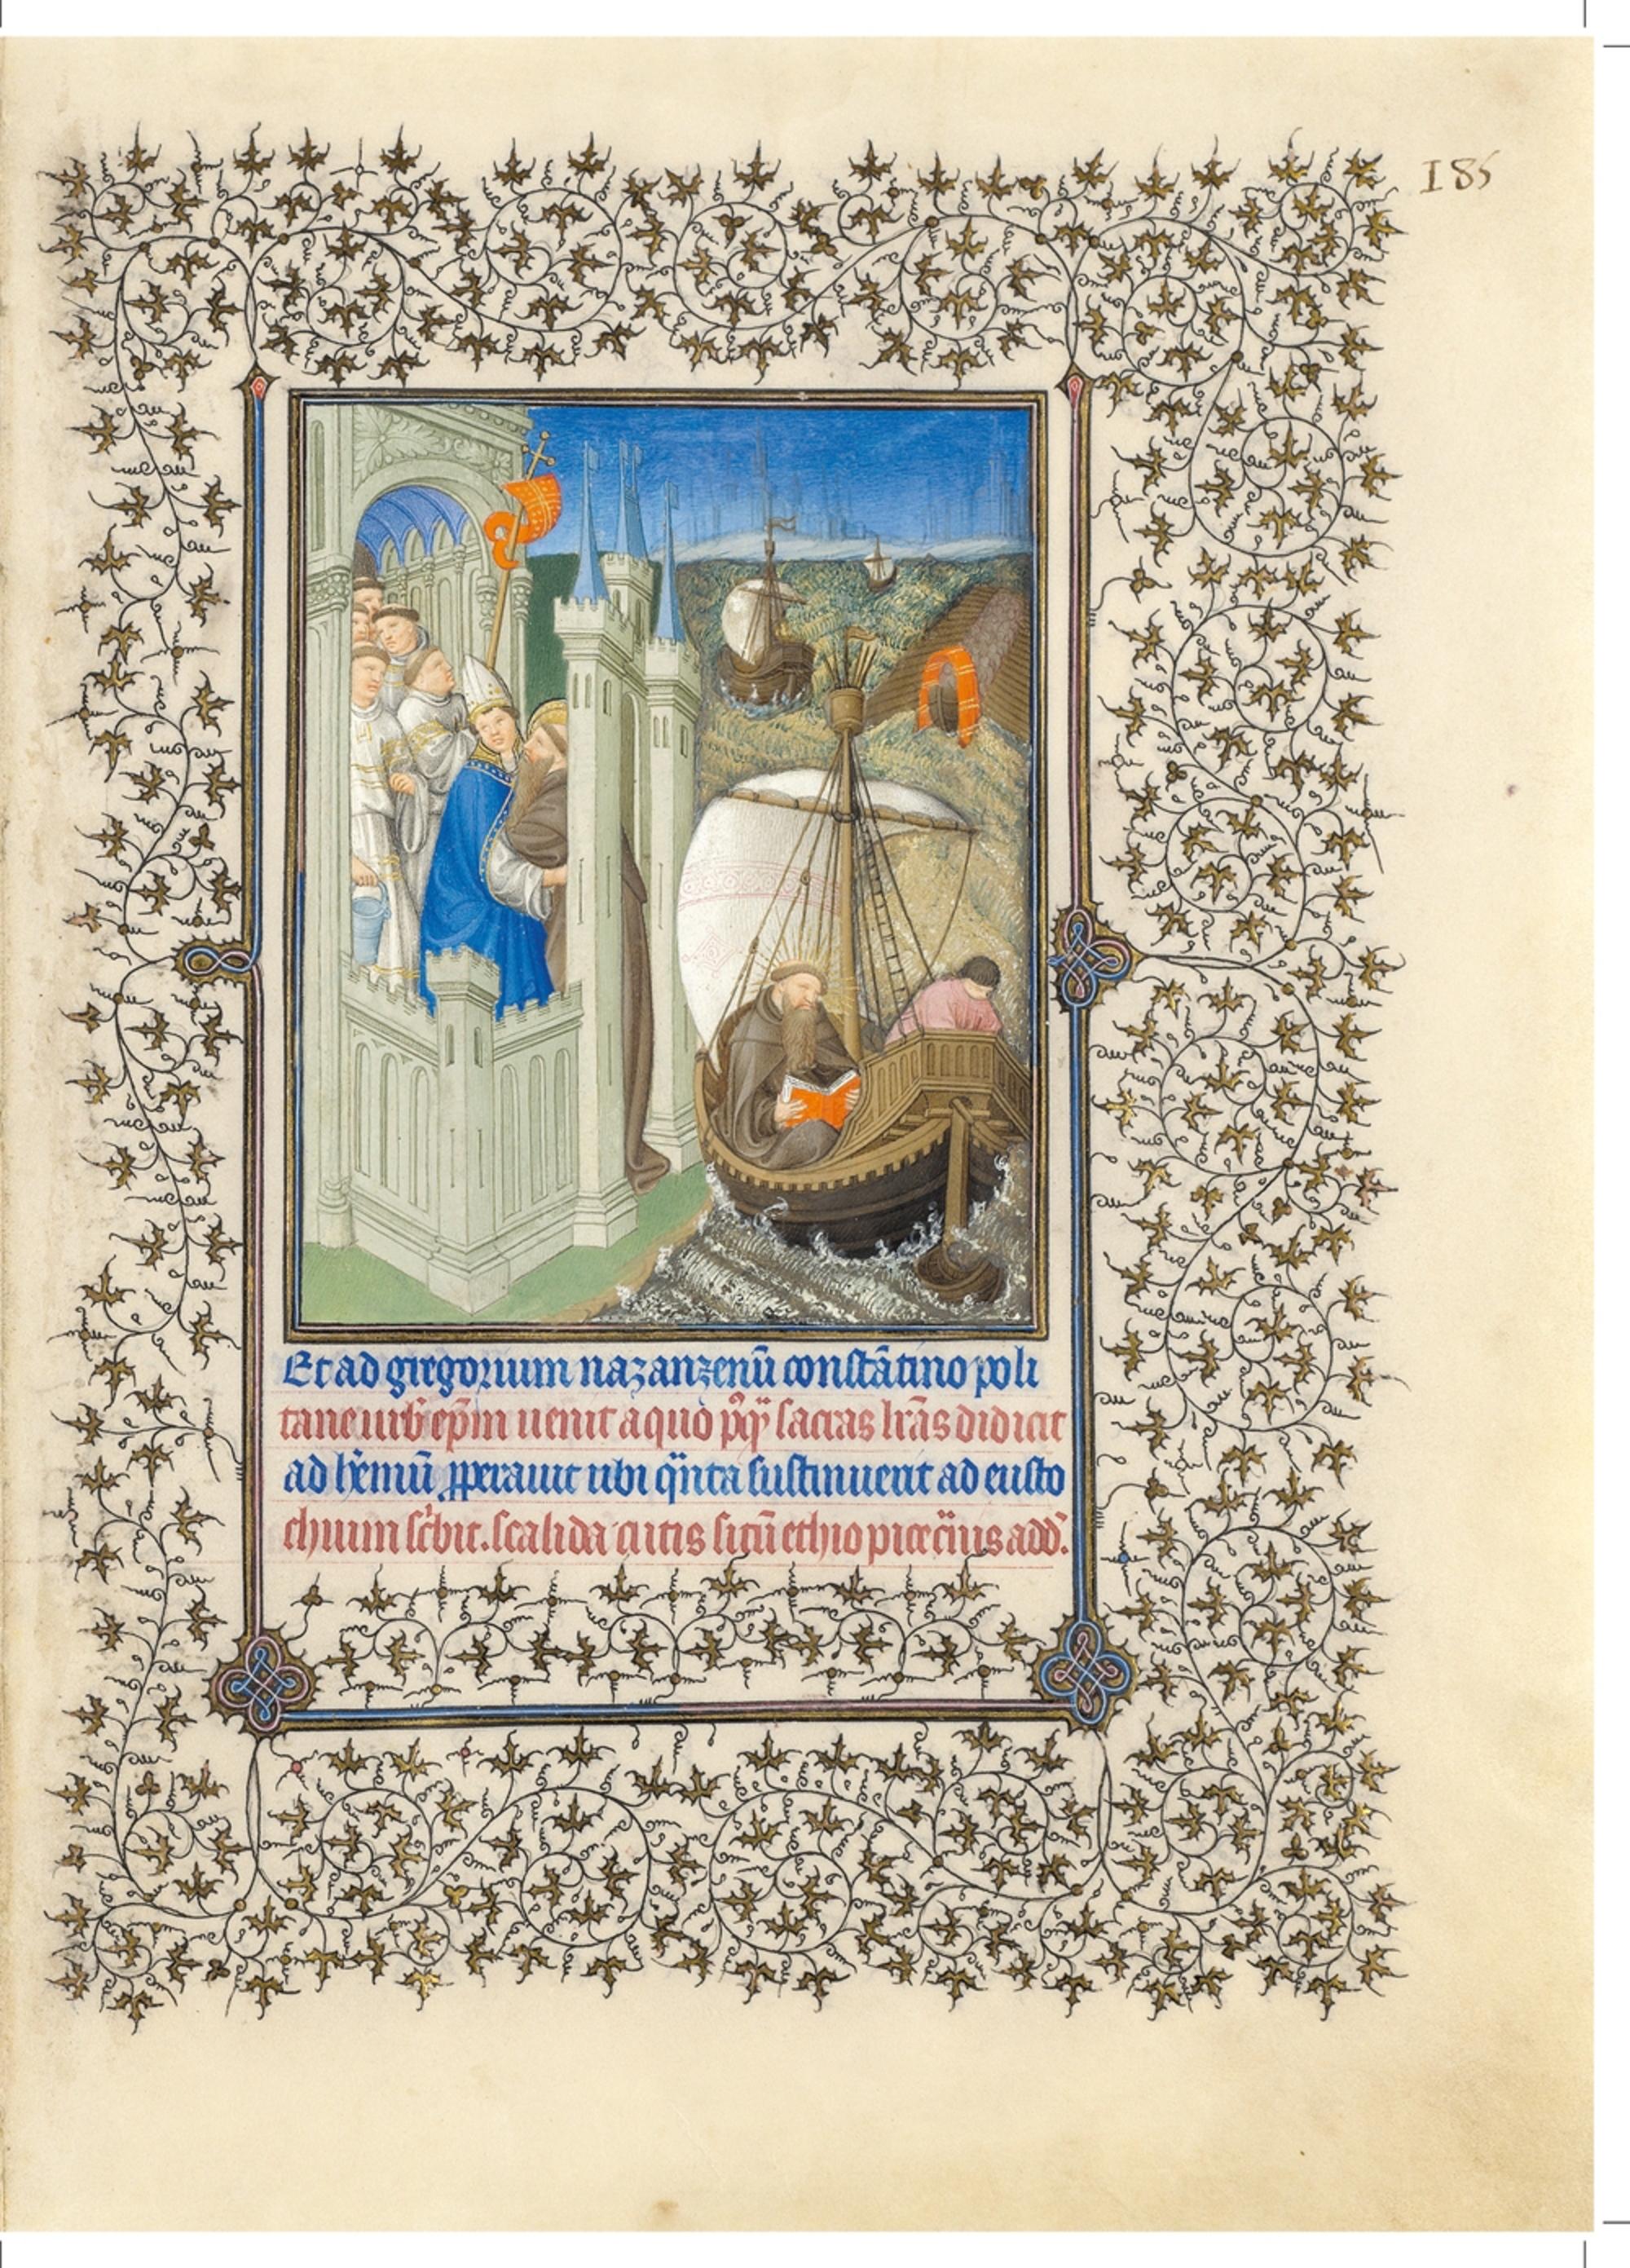 185
Et ad gregorium nazanzenū constātino poli
tane urb̄ ep̄m uenit a quo p̄q̄ sacras lr̄as didicit
ad h̄emū ꝓperauit ubi q̄nta sustinuerit ad eusto
chium sc̄bit. scalida cutis sitū ethiopice c̄nis add̄.